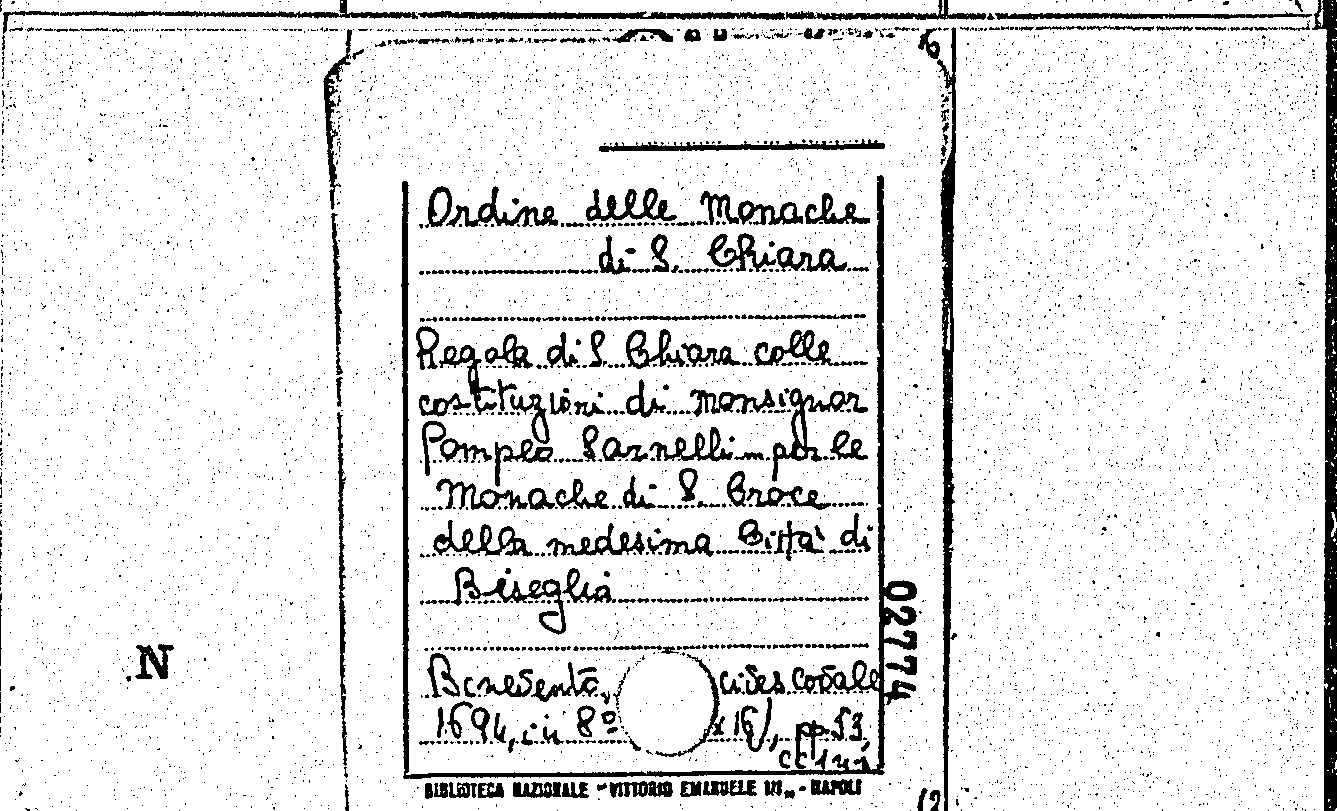 Ordine delle Monache
di S. Chiara
Regola di S. Chiara colle
costituzioni di monsignor
Pompeo Sarnelli per le
Monache di S. Croce
della medesima Città di
Biseglia
Benevento,
1694, in 8º 16), pp. 53,
02774
N
BIBLIOTECA NAZIONALE "VITTORIO EMANUELE III" - NAPOLI